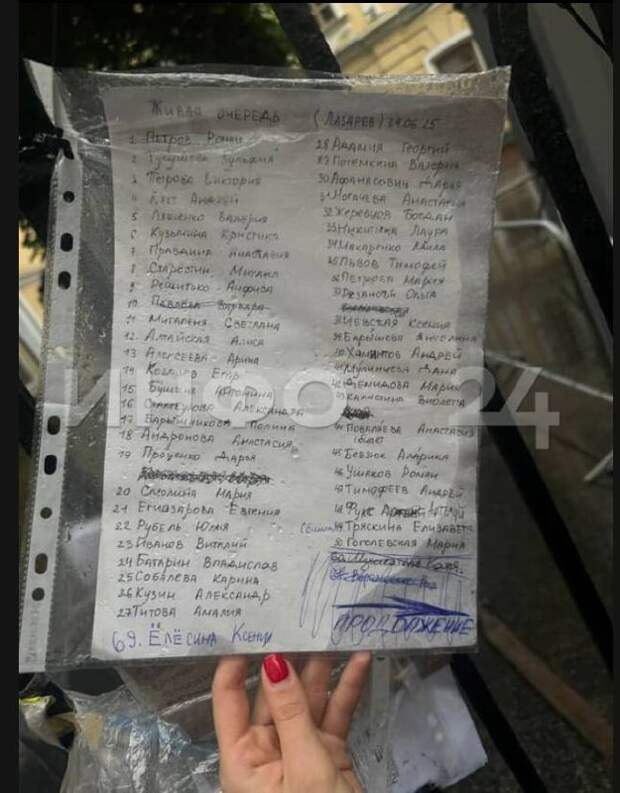 Живая очередь (Лазарев) 24.06.25
1 Петров Роман
2 Зульфия
3 Петрова Виктория
4 Андрей
5 Ляшенко Валерия
6 Кузьмина Кристина
7 Правдина Анастасия
8 Старостин Михаил
9 Решитько Анфиса
10 Варвара
11 Светлана
12 Алтайская Алиса
13 Алексеева Арина
14 Козырев Егор
15 Антонина
16 Александра
17 Барышникова Полина
18 Андронова Анастасия
19 Проценко Дарья
20 Смолина Мария
21 Егиазарова Евгения
22 Рубель Юлия
23 Иванов Виталий
24 Батарин Владислав
25 Соболева Карина
26 Кузин Александр
27 Титова Амалия
28 Адамия Георгий
29 Потемкина Валерия
30 Афанасович Мария
31 Могачева Анастасия
32 Жеревцов Богдан
33 Никитина Лаура
34 Макаренко Мила
35 Львов Тимофей
36 Петрова Мария
37 Рязаной Ольга
38 Невская Ксения
39 Барышева Ангелина
40 Хамитов Андрей
41 Дана
42 Демидова Мария
43 Калинина Виолетта
44 Поваляева Анастасия
(билет)
45 Бевзюк Амарика
46 Ушаков Роман
47 Тимофеев Андрей
48 Фукс
49 Тряскина Елизавета
50 Гоголевская Мария
ПРОДОЛЖЕНИЕ
69. Ёлёсина Ксения
ИНФО24